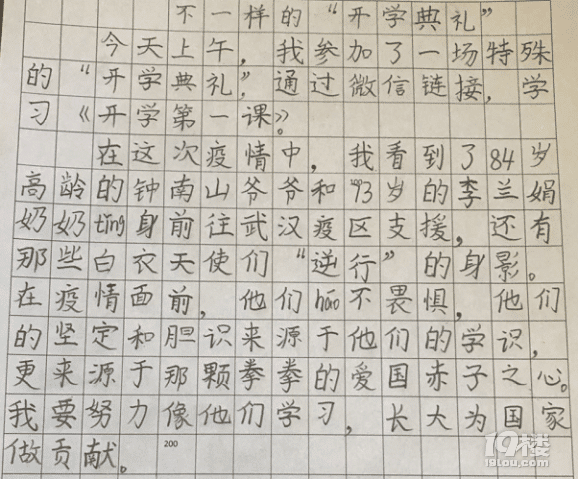 不一样的“开学典礼”
今天上午，我参加了一场特殊
的“开学典礼”，通过微信链接，学
习《开学第一课》。
在这次疫情中，我看到了84岁
高龄的钟南山爷爷和93岁的李兰娟
奶奶ting身前往武汉疫区支援，还有
那些白衣天使们“逆行”的身影。
在疫情面前，他们hào不畏惧，他们
的坚定和胆识来源于他们的学识，
更来源于那颗拳拳的爱国赤子之心。
我要努力像他们学习，长大为国家
做贡献。
200
19楼
19lou.com